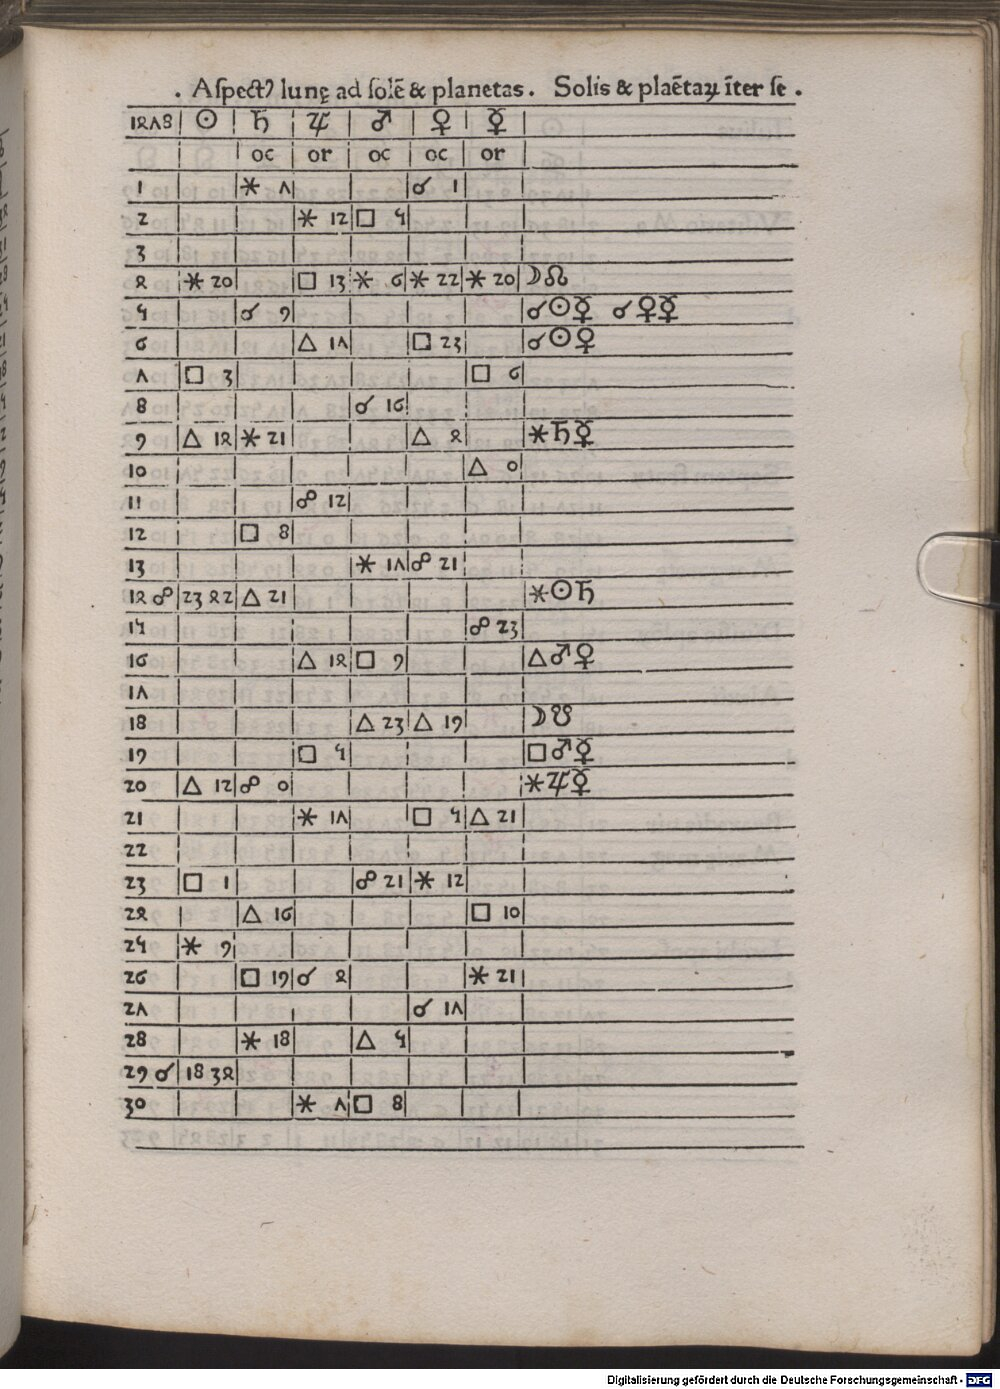 . Aspectꝰ lunę ad solē & planetas . Solis & plaētaꝝ īter se .
1478 ☉ ♄ ♃ ♂ ♀ ☿
oc or oc oc or
1 ⚹ 7 ☌ 1
2 ⚹ 12 □ 5
3
4 ⚹ 20 □ 13 ⚹ 6 ⚹ 22 ⚹ 20 ☽☊
5 ☌ 9 ☌☉☿ ☌♀☿
6 △ 17 □ 23 ☌☉♀
7 □ 3 □ 6
8 ☌ 16
9 △ 14 ⚹ 21 △ 4 ⚹♄☿
10 △ 0
11 ☍ 12
12 □ 8
13 ⚹ 17 ☍ 21
14 ☍ 23 42 △ 21 ⚹☉♄
15 ☍ 23
16 △ 14 □ 9 △♂♀
17
18 △ 23 △ 19 ☽☋
19 □ 5 □♂☿
20 △ 12 ☍ 0 ⚹♃☿
21 ⚹ 17 □ 5 △ 21
22
23 □ 1 ☍ 21 ⚹ 12
24 △ 16 □ 10
25 ⚹ 9
26 □ 19 ☌ 4 ⚹ 21
27 ☌ 17
28 ⚹ 18 △ 5
29 ☌ 18 34
30 ⚹ 7 □ 8
Digitalisierung gefördert durch die Deutsche Forschungsgemeinschaft - DFG